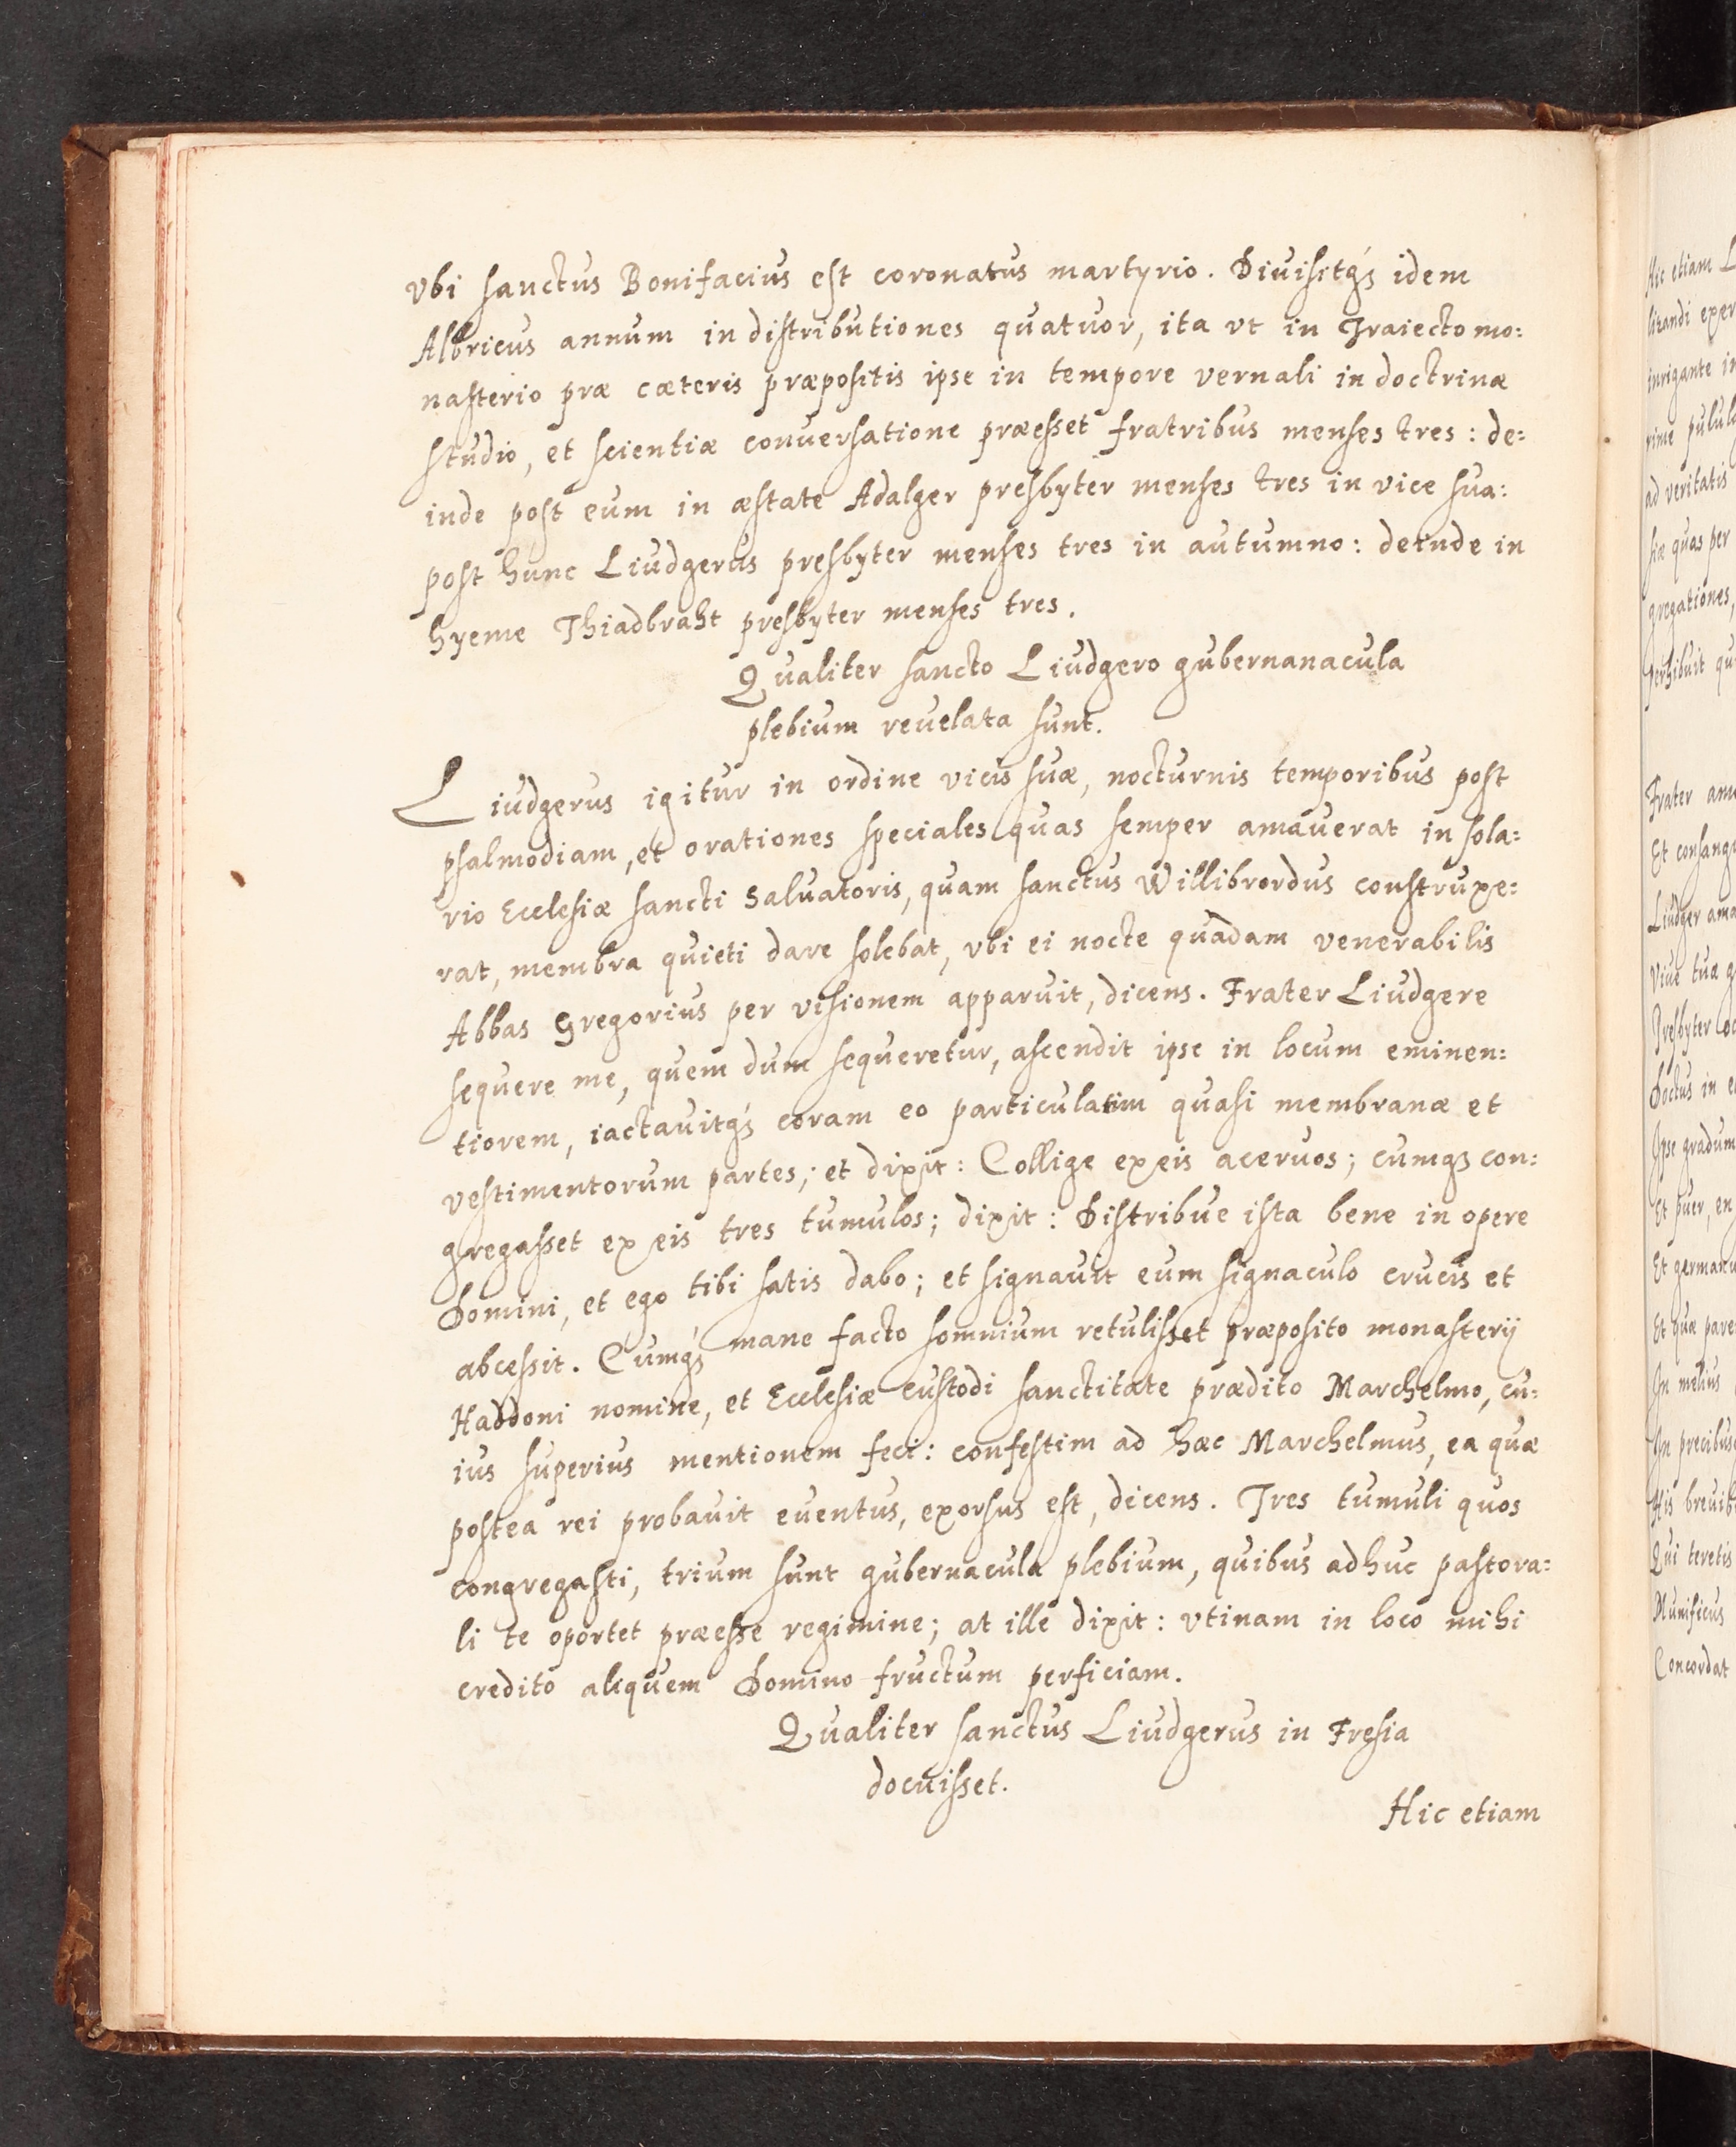 vbi sanctus Bonifacius est coronatus martyrio. Diuisitq́ꝫ idem
Albricus annum in distributiones quatuor, ita vt in Traiecto mo:
nasterio præ cæteris præpositis ipse in tempore vernali in doctrinæ
studio, et scientiæ conuersatione præesset fratribus menses tres: de:
inde post eum in æstate Adalger presbyter menses tres in vice sua:
post hunc Liudgerus presbyter menses tres in autumno: deinde in
hyeme Thiadbraht presbyter menses tres.
Qualiter sancto Liudgero gubernanacula
plebium reuelata sunt.
Liudgerus igitur in ordine vicis suæ, nocturnis temporibus post
psalmodiam, et orationes speciales quas semper amauerat in sola:
rio Ecclesiæ sancti Saluatoris, quam sanctus Willibrordus construxe:
rat, membra quieti dare solebat, vbi ei nocte quadam venerabilis
Abbas Gregorius per visionem apparuit, dicens. Frater Liudgere
sequere me, quem dum sequeretur, ascendit ipse in locum eminen:
tiorem, iactauitq́ꝫ coram eo particulatim quasi membranæ et
vestimentorum partes; et dixit: Collige ex eis aceruos; cumqꝫ con:
gregasset ex eis tres tumulos; dixit: Distribue ista bene in opere
Domini, et ego tibi satis dabo; et signauit eum signaculo crucis et
abcessit. Cumq́ꝫ mane facto somnium retulisset præposito monasterij
Haddoni nomine, et Ecclesiæ custodi sanctitate prædito Marchelmo, cu:
ius superius mentionem feci: confestim ad hæc Marchelmus, ea quæ
postea rei probauit euentus, exorsus est, dicens. Tres tumuli quos
congregasti, trium sunt gubernacula plebium, quibus adhuc pastora:
li te oportet præesse regimine; at ille dixit: vtinam in loco mihi
credito aliquem Domino fructum perficiam.
Qualiter sanctus Liudgerus in Fresia
docuisset.
Hic etiam
Hic etiam L
litandi exer
inrigante in
rime pulul
ad veritatis
siæ quas per
gregationes,
perhibuit qu
Frater am
Et consang
Liudger ama
Viue tuæ g
Presbyter oc
Doctus in e
Ipse gradum
Et puer, en
Et german
Et quæ pare
In melius
In precibus
His breuib
Qui teretis
Munificus
Concordat